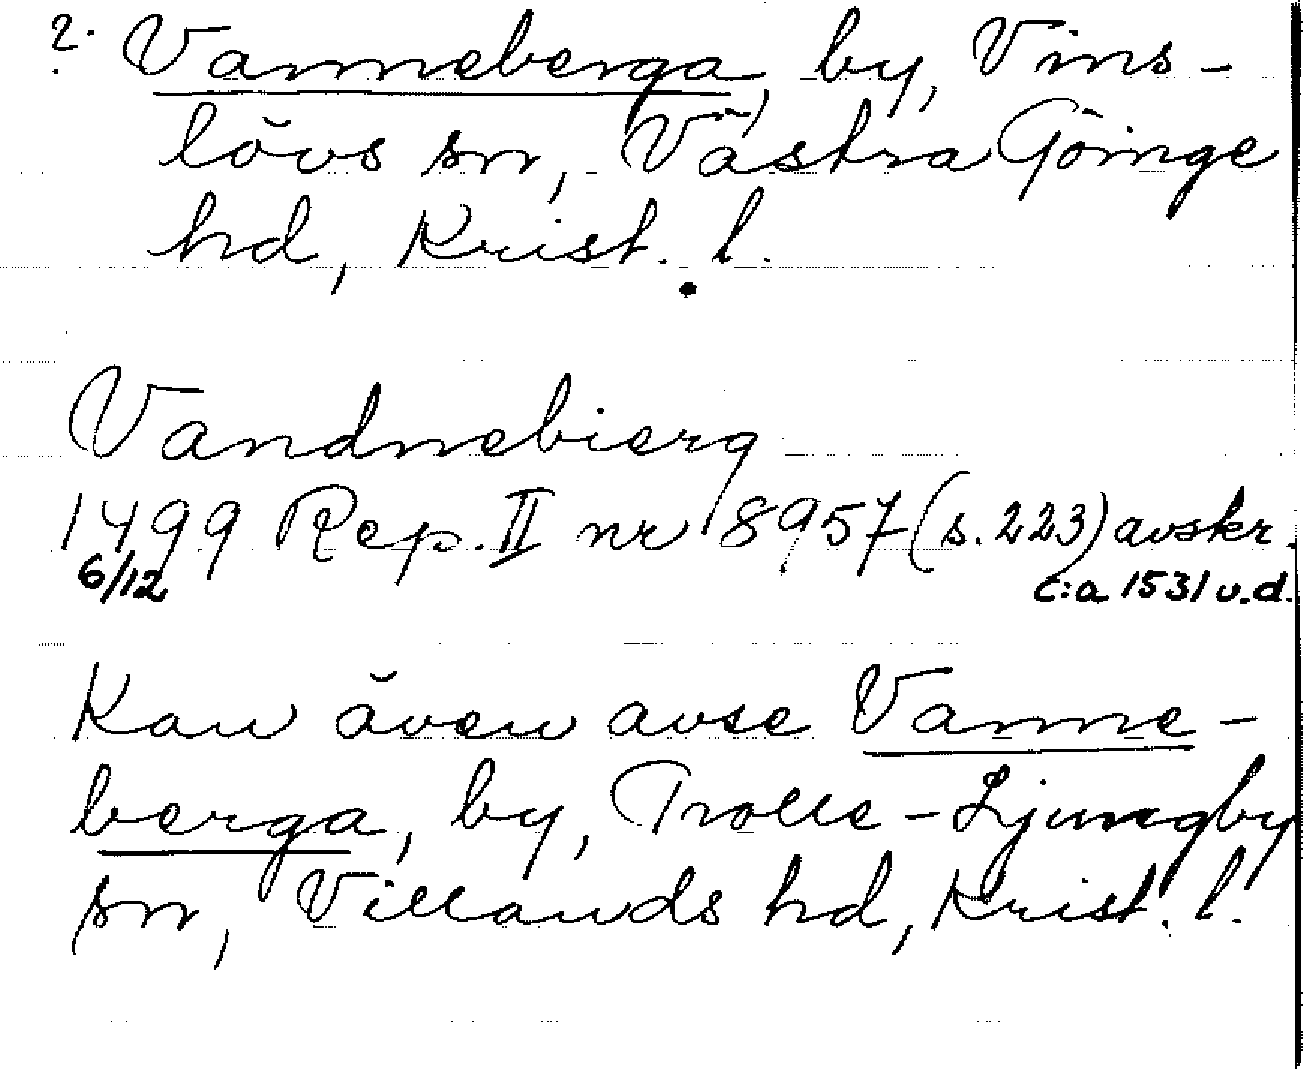 ?. Vanneberga, by, Vins-
lövs sn, Västra Göinge
hd, Krist. l.
Vandnebierg
1499 Rep. II nr 8957 (s. 223) avskr.
6/12 c:a 1531 u.d.
Kan även avse Vanne-
berga, by, Trolle-Ljungby
sn, Villands hd, Krist. l.